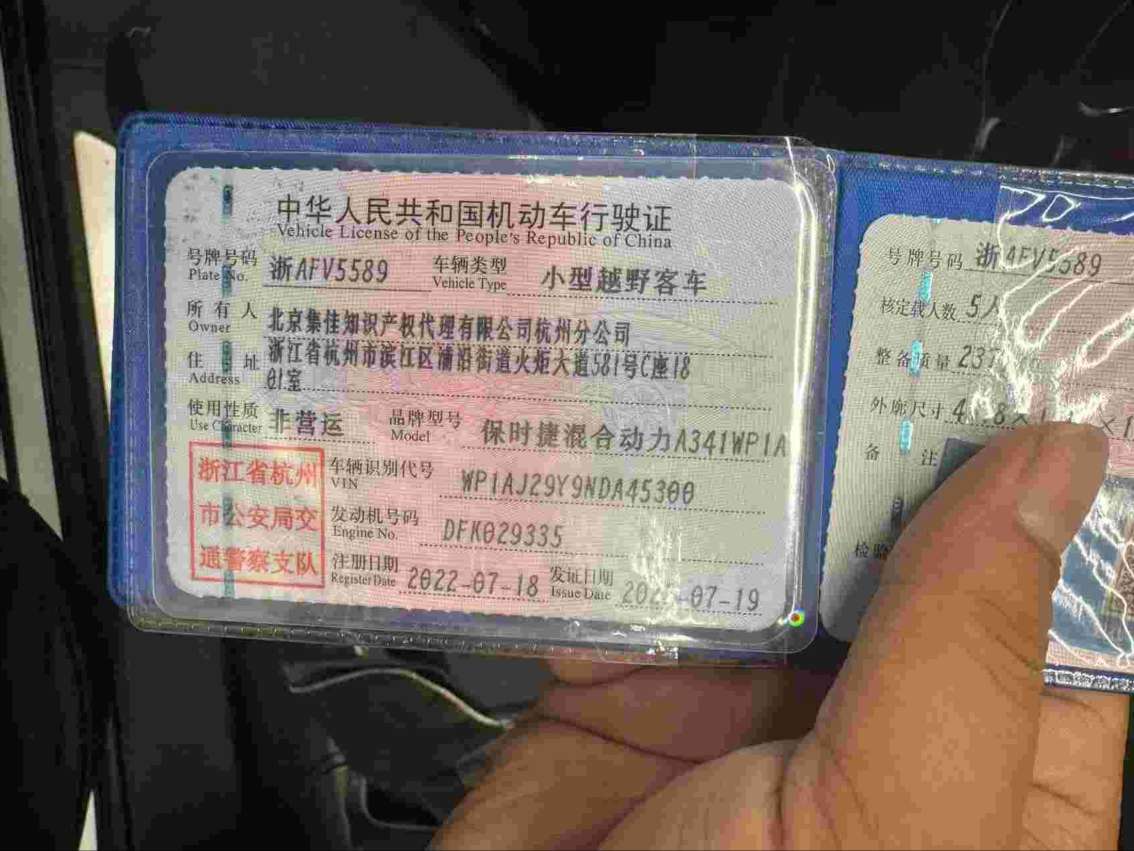 中华人民共和国机动车行驶证
Vehicle License of the People's Republic of China
号牌号码 浙AFV5589 车辆类型 小型越野客车
Plate No. Vehicle Type
所有人 北京集佳知识产权代理有限公司杭州分公司
Owner
住址 浙江省杭州市滨江区浦沿街道火炬大道581号C座18
Address 01室
使用性质 非营运 品牌型号 保时捷混合动力A341WP1A
Use Character Model
浙江省杭州
市公安局交
通警察支队
车辆识别代号 WP1AJ29Y9NDA45300
VIN
发动机号码 DFK029335
Engine No.
注册日期 2022-07-18 发证日期 07-19
Register Date Issue Date
号牌号码 浙AFV5589
核定载人数 5人
整备质量 237
外廓尺寸
备注
检验